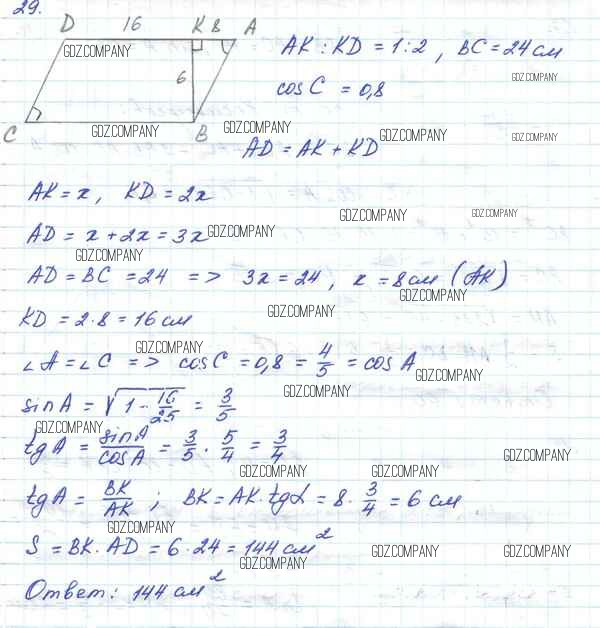 29.
D 16 K 8 A
AK : KD = 1:2 , BC = 24 см
GDZ.COMPANY
GDZ.COMPANY
6
cos C = 0,8
C B
GDZ.COMPANY GDZ.COMPANY GDZ.COMPANY GDZ.COMPANY
AD = AK + KD
AK = x, KD = 2x
GDZ.COMPANY GDZ.COMPANY
AD = x + 2x = 3x
GDZ.COMPANY
GDZ.COMPANY
AD = BC = 24 => 3x = 24, x = 8 см (AK)
GDZ.COMPANY
KD = 2·8 = 16 см
GDZ.COMPANY
GDZ.COMPANY
∠A = ∠C => cos C = 0,8 = 4/5 = cos A
GDZ.COMPANY
sin A = √1 - 16/25 = 3/5
GDZ.COMPANY
GDZ.COMPANY
tg A = sin A/cos A = 3/5 · 5/4 = 3/4
GDZ.COMPANY
GDZ.COMPANY GDZ.COMPANY
tg A = BK/AK ; BK = AK · tg α = 8 · 3/4 = 6 см
GDZ.COMPANY
GDZ.COMPANY
S = BK · AD = 6 · 24 = 144 см²
GDZ.COMPANY GDZ.COMPANY
GDZ.COMPANY
Ответ: 144 см²